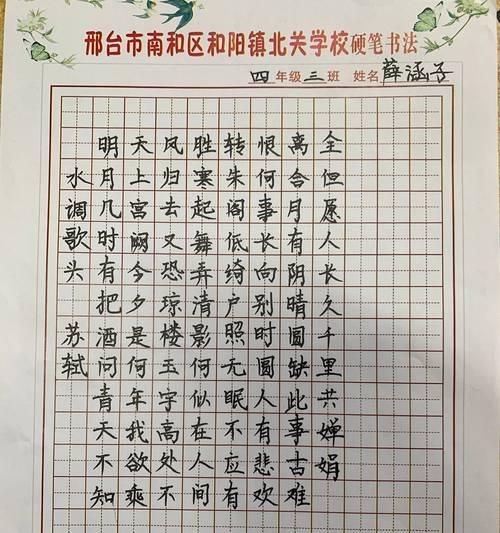 邢台市南和区和阳镇北关学校硬笔书法
四年级三班 姓名薛涵子
水调歌头 苏轼
明月几时有把酒问青天不知
天上宫阙今夕是何年我欲乘
风归去又恐琼楼玉宇高处不
胜寒起舞弄清影何似在人间
转朱阁低绮户照无眠不应有
恨何事长向别时圆人有悲欢
离合月有阴晴圆缺此事古难
全但愿人长久千里共婵娟